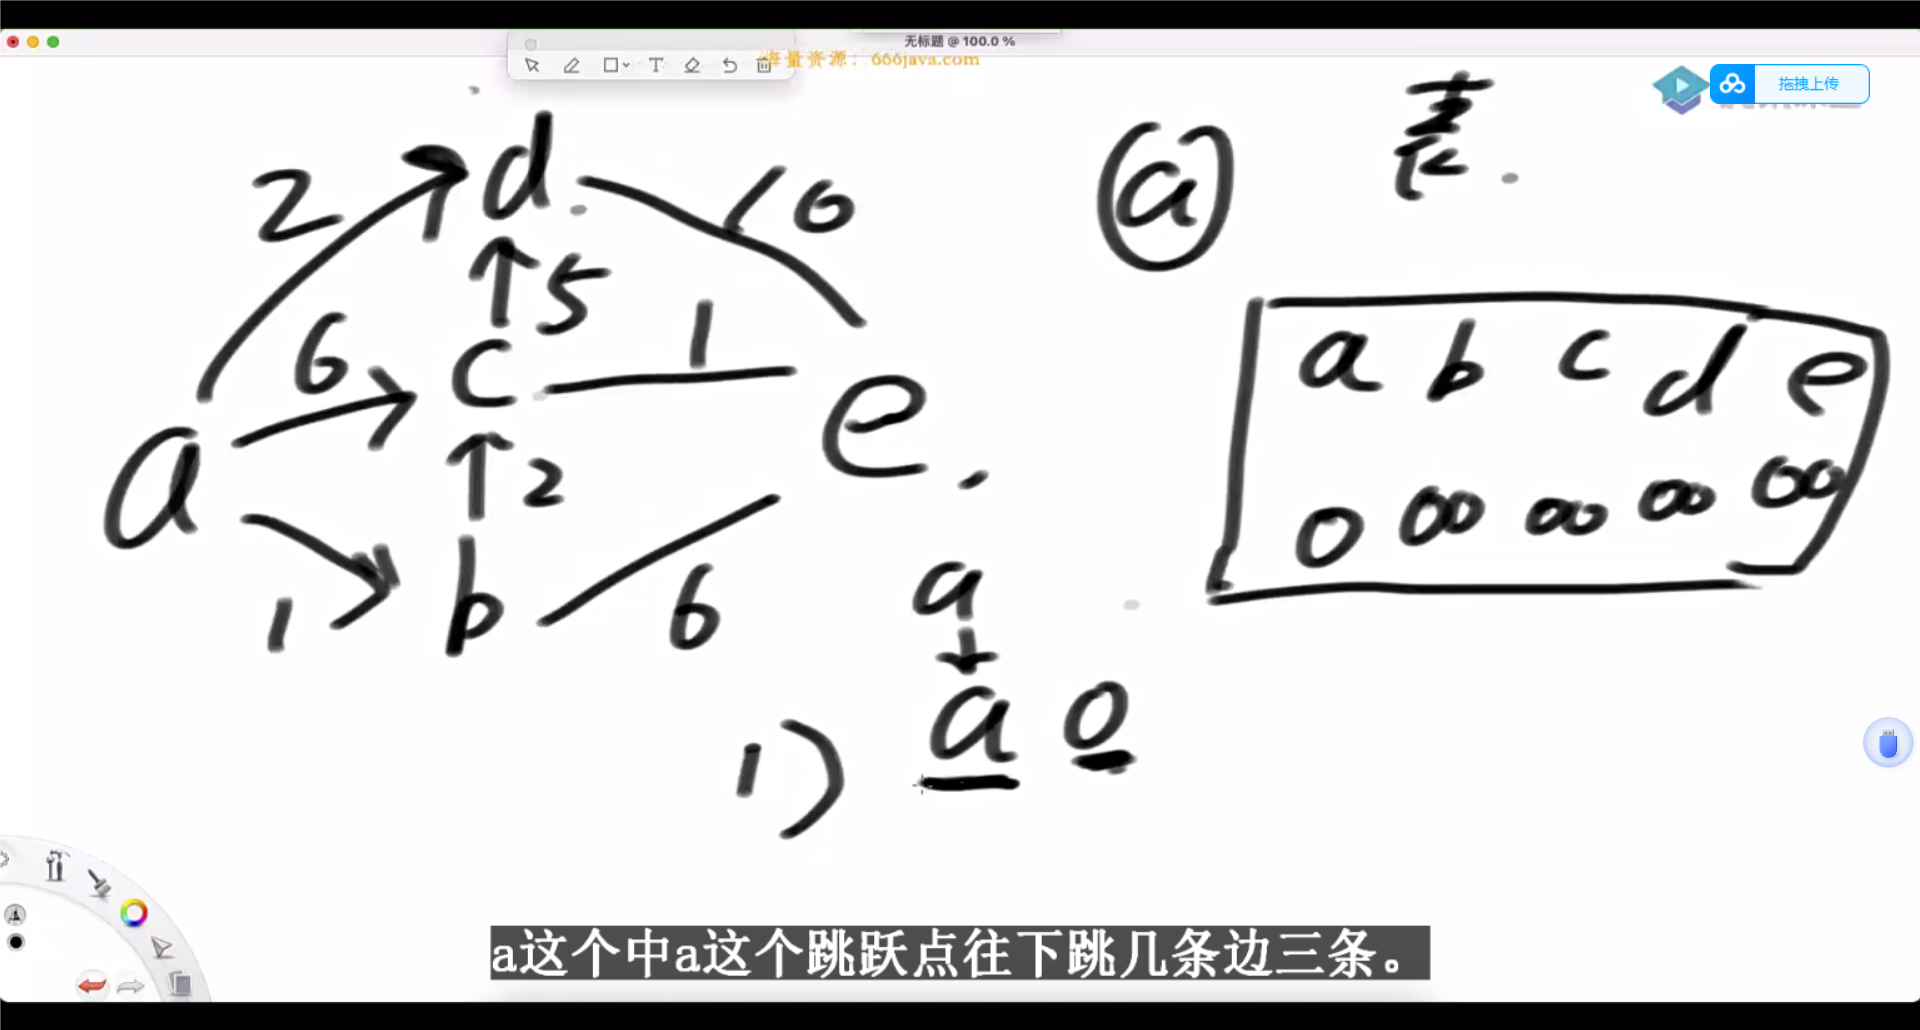 无标题 @ 100.0 %
海量资源：666java.com
拖拽上传
2 d 10
5
6 c 1
a e
2
1 b 6
a 表
a b c d e
0 ∞ ∞ ∞ ∞
a
1) a 0
a这个中a这个跳跃点往下跳几条边三条。